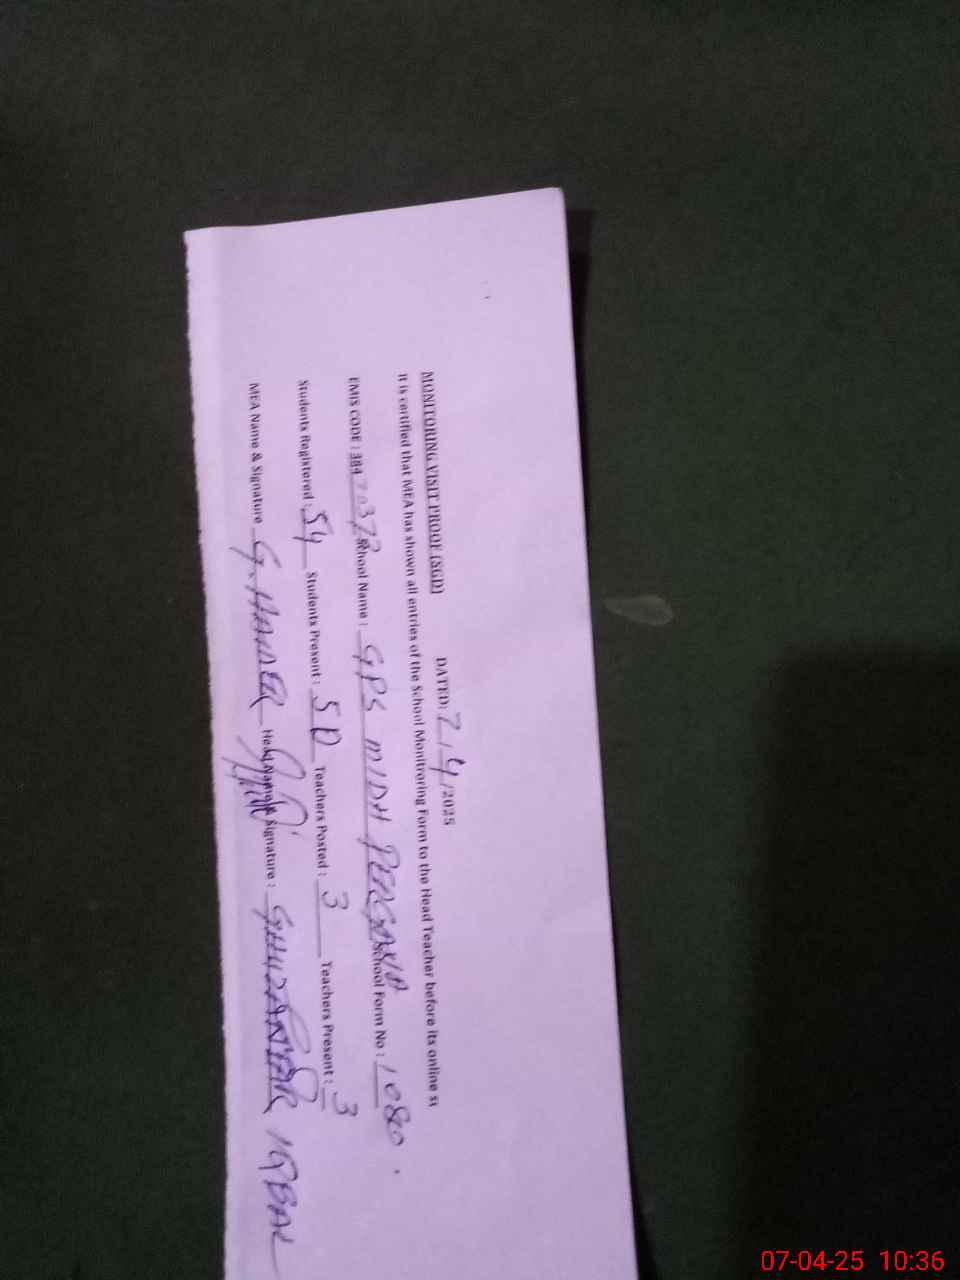 MONITORING VISIT PROOF (SGD) DATED: 7/4/2025
It is certified that MEA has shown all entries of the School Monitroring Form to the Head Teacher before its online su
EMIS CODE : 38470373 School Name : GPS MIDH School Form No : 1080
Students Registered : 54 Students Present : 50 Teachers Posted : 3 Teachers Present : 3
MEA Name & Signature G. HAIDER Head Name & Signature : IQBAL
07-04-25 10:36